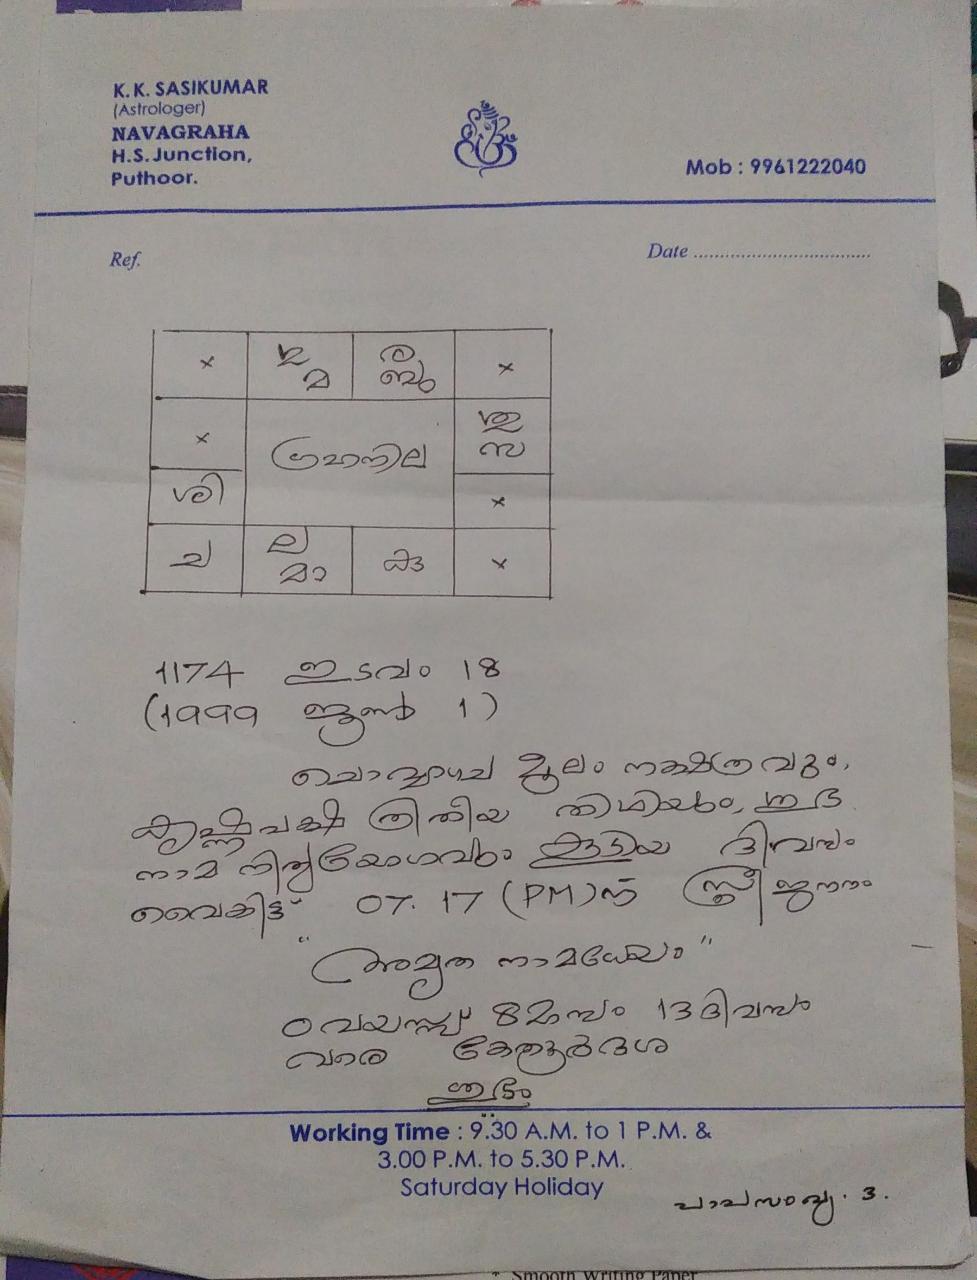 K. K. SASIKUMAR
(Astrologer)
NAVAGRAHA
H.S. Junction,
Puthoor.
Mob : 9961222040
Ref.
Date ..................................
× ×
മ ബു
× സ
ഗ്രഹനില
ശി ×
ച ല മാ കു ×
1174 ഇടവം 18
(1999 ജൂൺ 1)
ചൊവ്വാഴ്ച മൂലം നക്ഷത്രവും,
കൃഷ്ണപക്ഷ ത്രിതീയ തിഥിയും, ശുഭ
നാമ നിത്യയോഗവും കൂടിയ ദിവസം
വൈകിട്ട് 07.17 (PM)ന് സ്ത്രീ ജനനം
"അമൃത നാമധേയം"
0 വയസ്സ് 8 മാസം 13 ദിവസം
വരെ കേതൂർദശ
ശുഭം
Working Time : 9.30 A.M. to 1 P.M. &
3.00 P.M. to 5.30 P.M.
Saturday Holiday
പാപസംഖ്യ. 3.
* Smooth Writing Paper